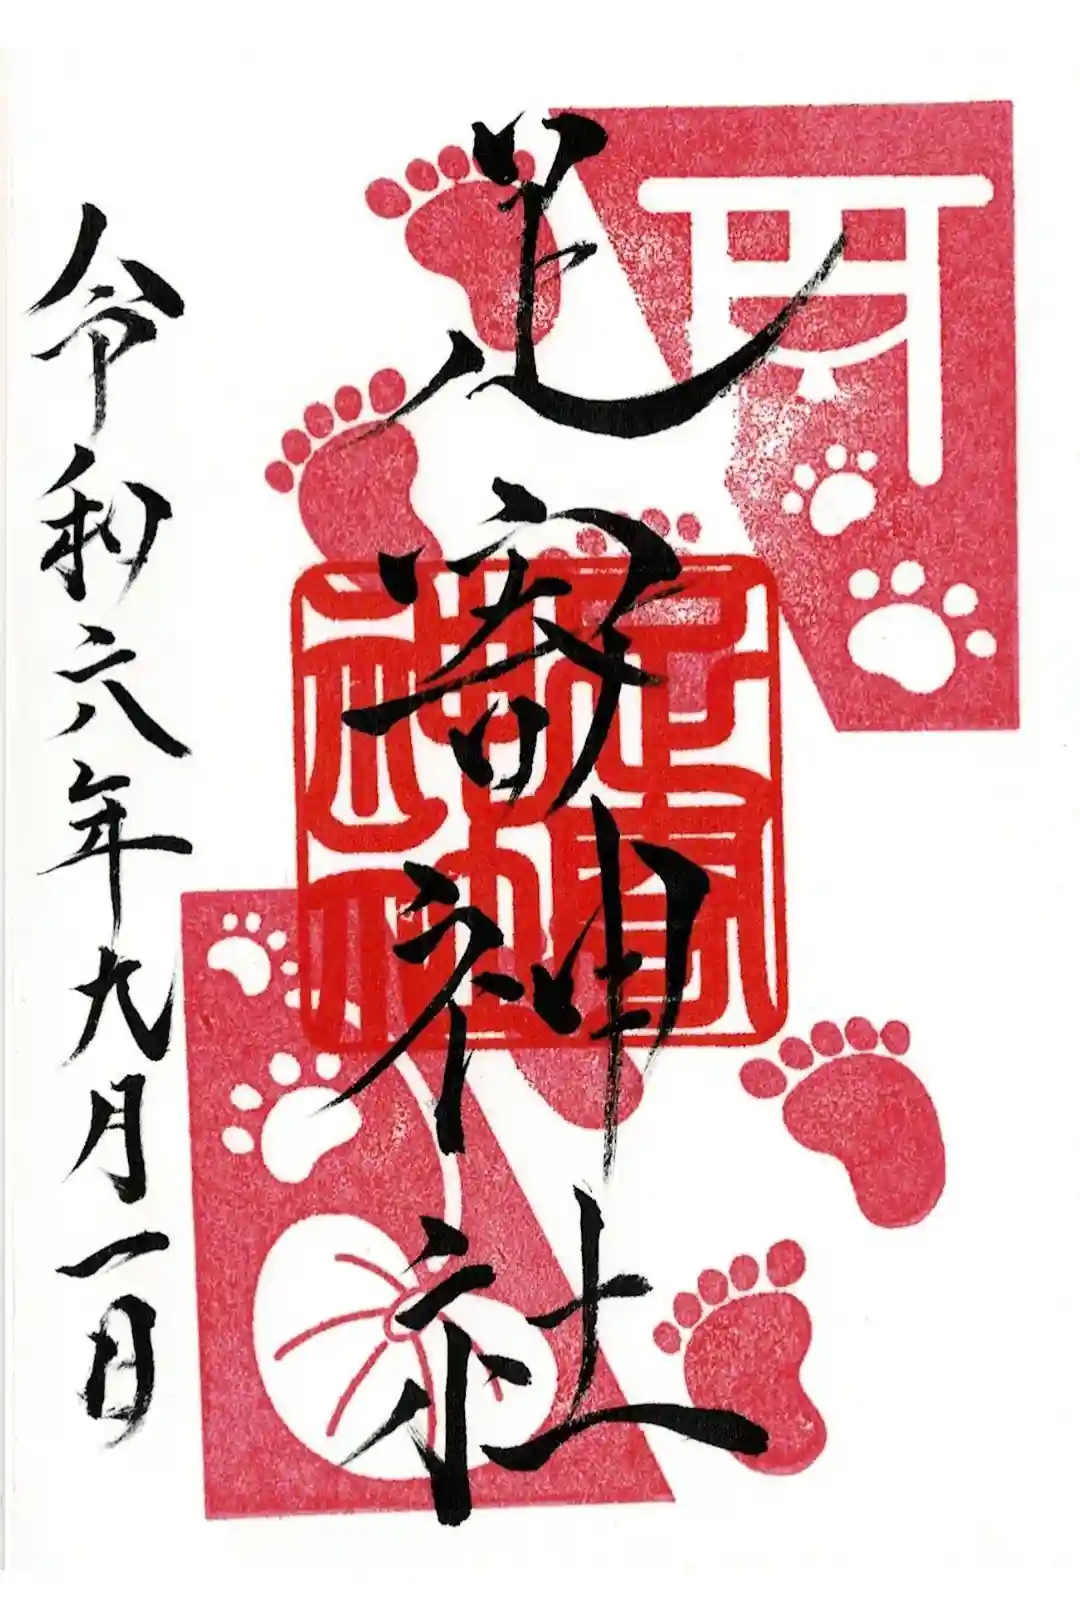 足寄神社
令和六年九月一日
足寄
神社